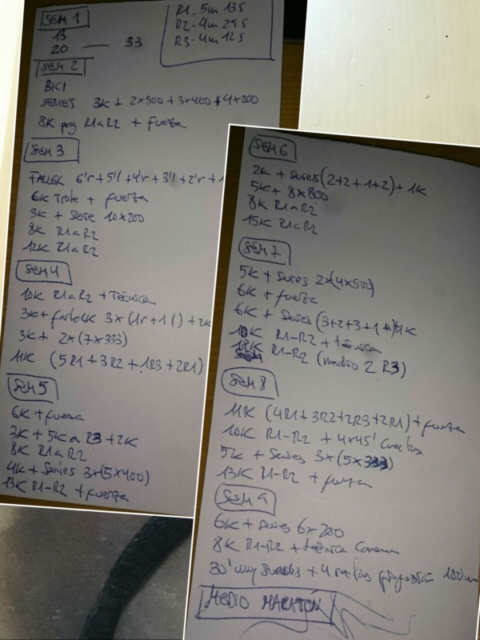 SEM 1
R1 - 5m 13s
R2 - 4m 29s
R3 - 4m 12s
13
20 — 33
SEM 2
BICI
SERIES 3K + 2x500 + 3x400 + 4x200
8K prog R1 a R2 + fuerza
SEM 3
FARLEK 6'r + 5'l + 4'r + 3'l + 2'r + 1
6K Trote + fuerza
3K + Serie 10x200
8K R1 a R2
12K R1 a R2
SEM 4
10K R1 a R2 + Técnica
3K + farlek 3x (1r + 1l) + 2K
3K + 2x (7x333)
11K (5R1 + 3R2 + 1R3 + 2R1)
SEM 5
6K + fuerza
3K + 5K a R3 + 2K
8K R1 a R2
4K + Series 3x(5x400)
13K R1-R2 + fuerza
SEM 6
2K + Series (2+2+1+2) + 1K
5K + 8x800
8K R1 a R2
15K R1 a R2
SEM 7
5K + Series 2x(4x500)
6K + fuerza
6K + Series (3+2+3+1+ 1K
10K R1-R2 + técnica
R1-R2 (medio 2 R3)
SEM 8
11K (4R1 + 3R2 + 2R3 + 2R1) + fuerza
10K R1-R2 + 4x45' cuestas
5K + Series 3x (5x333)
13K R1-R2 + fuerza
SEM 9
6K + series 6x200
8K R1-R2 + técnica Carrera
30' muy suaves + 4 rectas progresión 100m
MEDIO MARATÓN